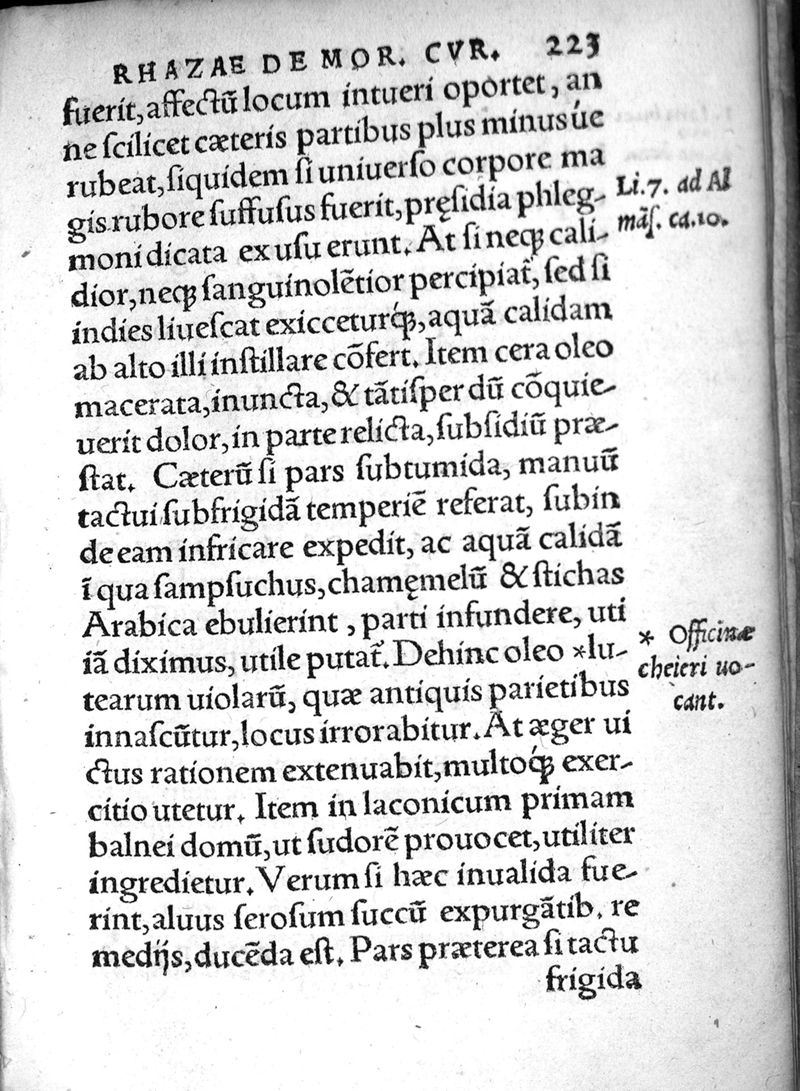 RHAZAE DE MOR. CVR. 223
fuerit, affectũ locum intueri oportet, an
ne ſcilicet cæteris partibus plus minus úe
rubeat, ſiquidem ſi uniuerſo corpore ma
gis rubore ſuffuſus fuerit, pręſidia phleg-
moni dicata ex uſu erunt. At ſi neqꝫ cali-
dior, neqꝫ ſanguinolẽtior percipiat᷑, ſed ſi
indies liueſcat exicceturq́ꝫ, aquã calidam
ab alto illi inſtillare cõfert. Item cera oleo
macerata, inuncta, & tãtiſper dũ cõquie-
uerit dolor, in parte relicta, ſubſidiũ præ-
ſtat. Cæterũ ſi pars ſubtumida, manuũ
tactui ſubfrigidã temperiẽ referat, ſubin
de eam infricare expedit, ac aquã calidã
ĩ qua ſampſuchus, chamęmelũ & ſtichas
Arabica ebulierint, parti infundere, uti
iã diximus, utile putat᷑. Dehinc oleo *lu-
tearum uiolarũ, quæ antiquis parietibus
innaſcũtur, locus irrorabitur. At æger ui
ctus rationem extenuabit, multoq́ꝫ exer-
citio utetur. Item in laconicum primam
balnei domũ, ut ſudorẽ prouocet, utiliter
ingredietur. Verum ſi hæc inualida fue-
rint, aluus ſeroſum ſuccũ expurgãtib. re
medijs, ducẽda eſt. Pars præterea ſi tactu
frigida
Li. 7. ad Al
mãſ. ca. 10.
* Officinæ
cheieri uo-
cant.